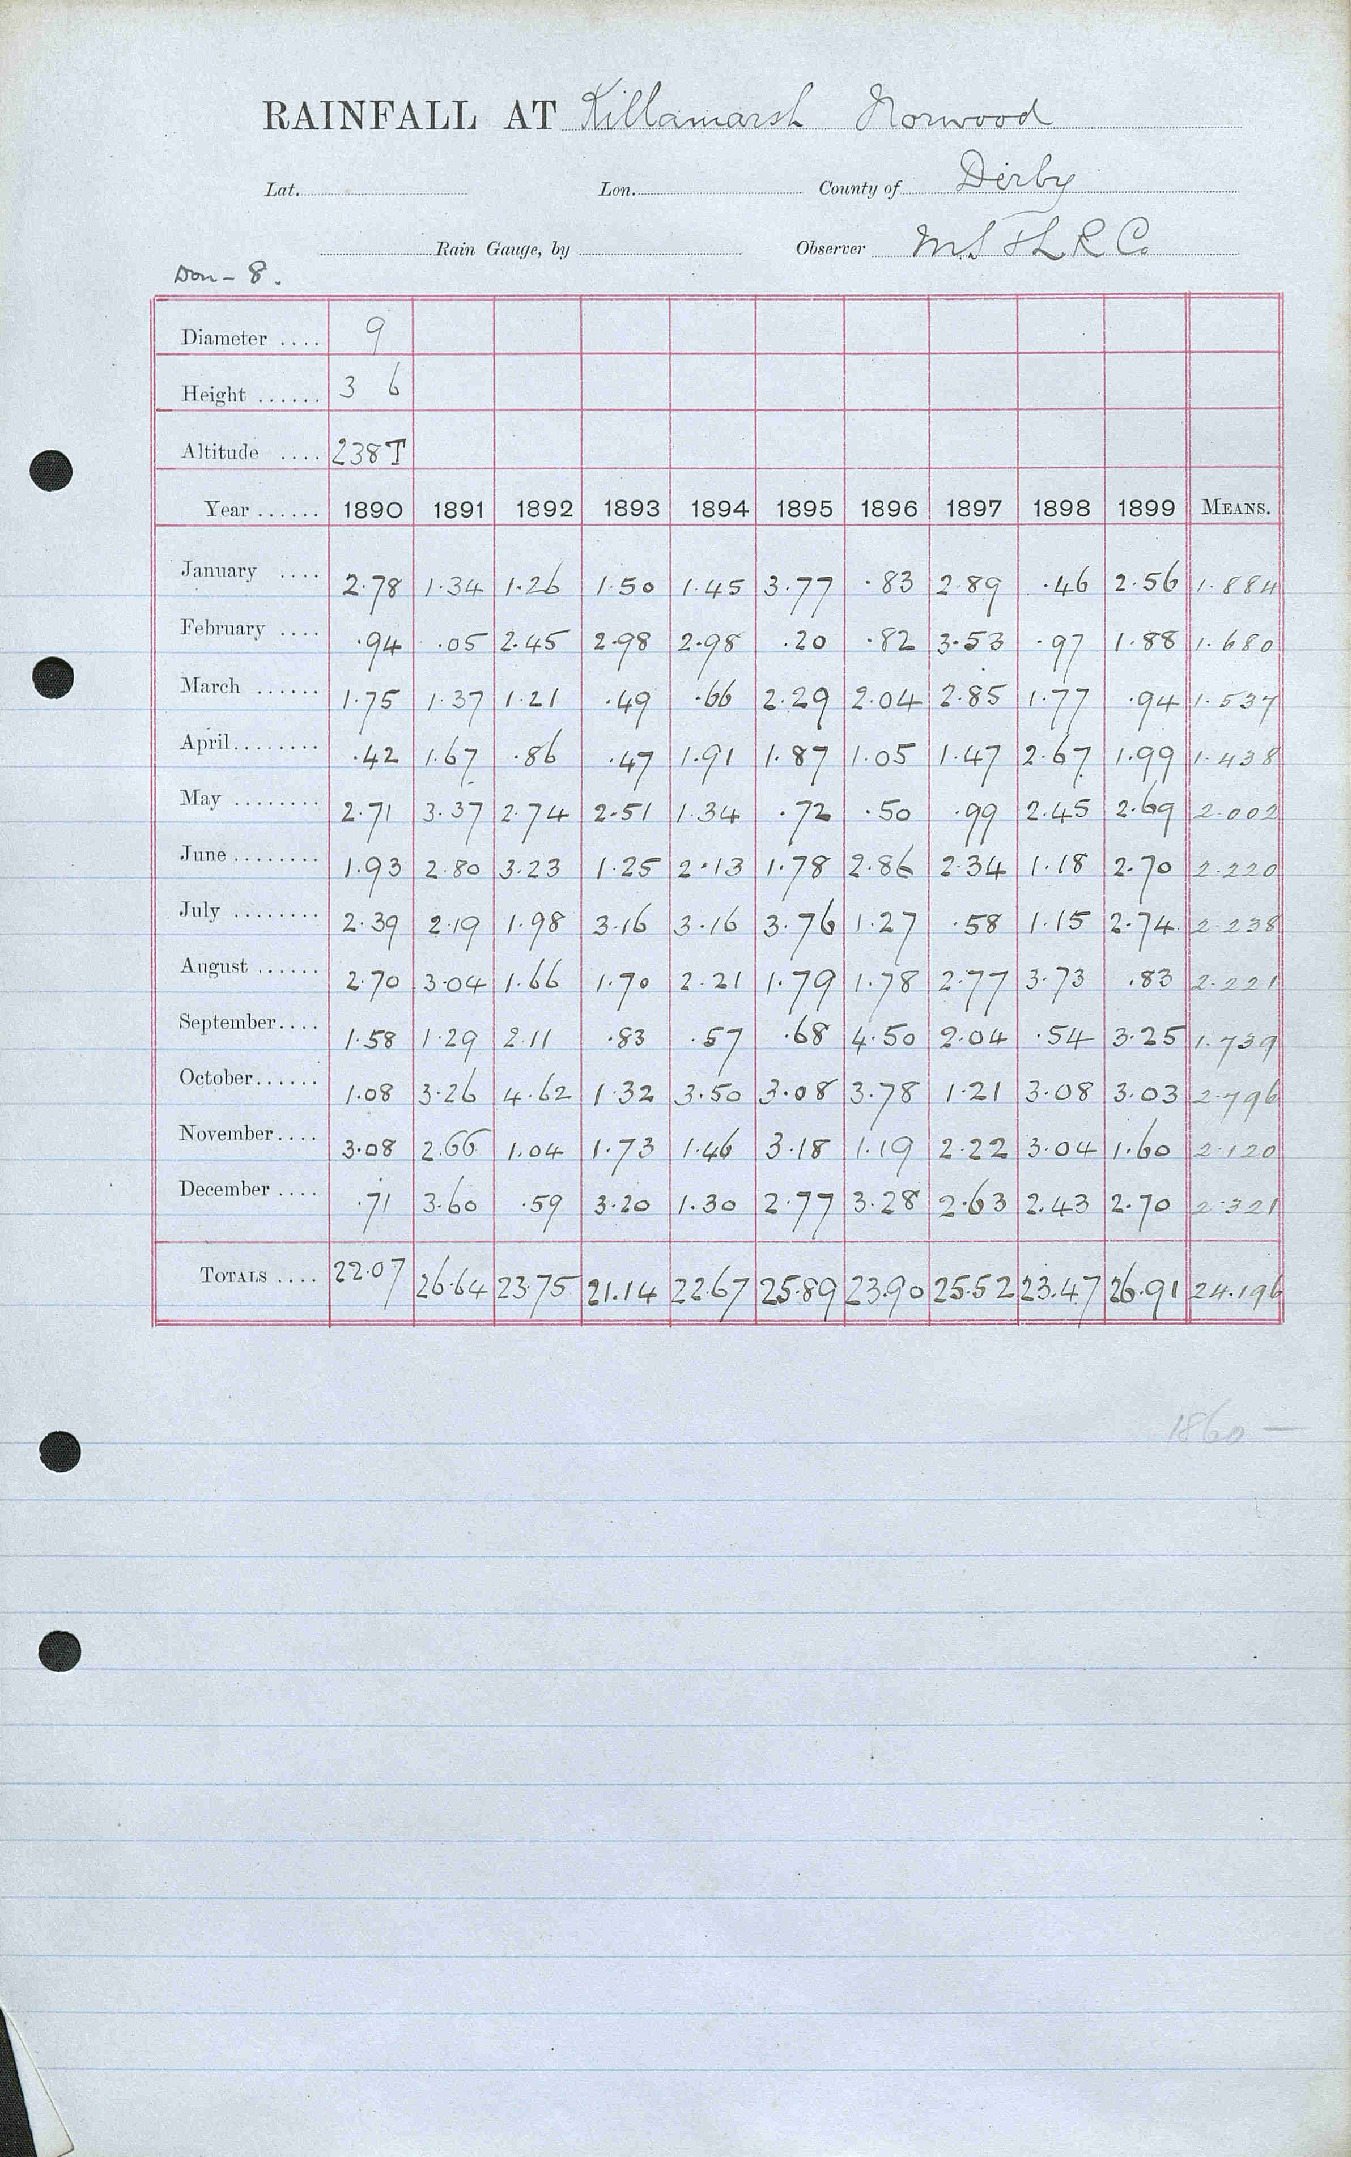 RAINFALL AT Killamarsh Norwood
Lat. Lon. County of Derby
Rain Gauge, by Observer M S & L R Co
Don - 8.
Diameter .... 9
Height ...... 3 6
Altitude .... 238 T
Year ...... 1890 1891 1892 1893 1894 1895 1896 1897 1898 1899 MEANS.
January .... 2.78 1.34 1.26 1.50 1.45 3.77 .83 2.89 .46 2.56 1.884
February .... .94 .05 2.45 2.98 2.98 .20 .82 3.53 .97 1.88 1.680
March ...... 1.75 1.37 1.21 .49 .66 2.29 2.04 2.85 1.77 .94 1.537
April........ .42 1.67 .86 .47 1.91 1.87 1.05 1.47 2.67 1.99 1.438
May ........ 2.71 3.37 2.74 2.51 1.34 .72 .50 .99 2.45 2.69 2.002
June ........ 1.93 2.80 3.23 1.25 2.13 1.78 2.86 2.34 1.18 2.70 2.220
July ........ 2.39 2.19 1.98 3.16 3.16 3.76 1.27 .58 1.15 2.74 2.238
August ...... 2.70 3.04 1.66 1.70 2.21 1.79 1.78 2.77 3.73 .83 2.221
September.... 1.58 1.29 2.11 .83 .57 .68 4.50 2.04 .54 3.25 1.739
October...... 1.08 3.26 4.62 1.32 3.50 3.08 3.78 1.21 3.08 3.03 2.796
November.... 3.08 2.66 1.04 1.73 1.46 3.18 1.19 2.22 3.04 1.60 2.120
December .... .71 3.60 .59 3.20 1.30 2.77 3.28 2.63 2.43 2.70 2.321
TOTALS .... 22.07 26.64 23.75 21.14 22.67 25.89 23.90 25.52 23.47 26.91 24.196
1860 —